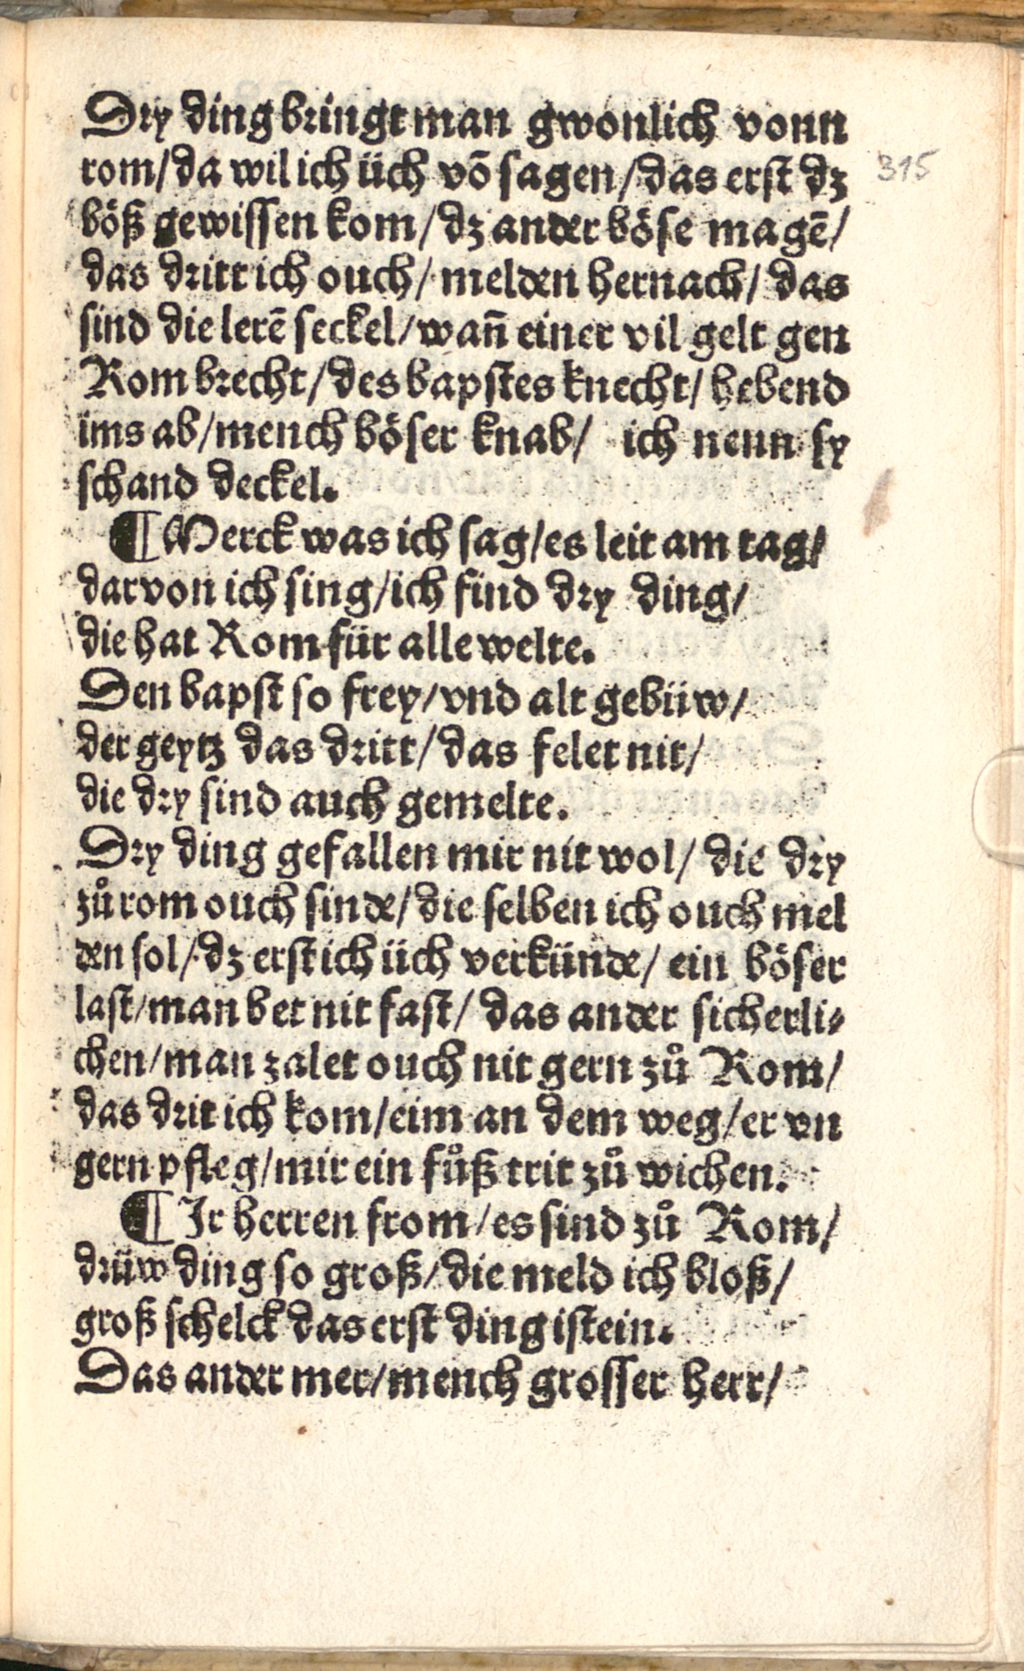 Dry ding bringt man gwonlich vonn
rom/da wil ich üch võ sagen/das erst dz
315
böß gewissen kom/dz ander böse magẽ/
das dritt ich ouch/melden hernach/das
sind die lerẽ seckel/wañ einer vil gelt gen
Rom brecht/des bapstes knecht/hebend
ims ab/mench böser knab/ ich nenn sy
schand deckel.
¶ Merck was ich sag/es leit am tag/
darvon ich sing/ich find dry ding/
die hat Rom für alle welte.
Den bapst so frey/vnd alt gebüw/
der geytz das dritt/das felet nit/
die dry sind auch gemelte.
Dry ding gefallen mir nit wol/die dry
zů rom ouch sinde/die selben ich ouch mel
den sol/dz erst ich üch verkünde/ein böser
last/man bet nit fast/das ander sicherli⸗
chen/man zalet ouch nit gern zů Rom/
das drit ich kom/eim an dem weg/er vn
gern pfleg/mir ein fůß trit zů wichen.
¶ Ir herren from/es sind zů Rom/
drüw ding so groß/die meld ich bloß/
groß schelck das erst ding ist ein.
Das ander mer/mench grosser herr/